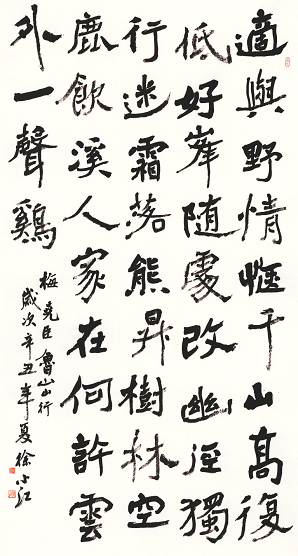 適與野情愜千山高復
低好峯随處改幽徑獨
行迷霜落熊昇樹林空
鹿飲溪人家在何許雲
外一聲鷄
梅堯臣魯山山行
歲次辛丑年夏徐小江